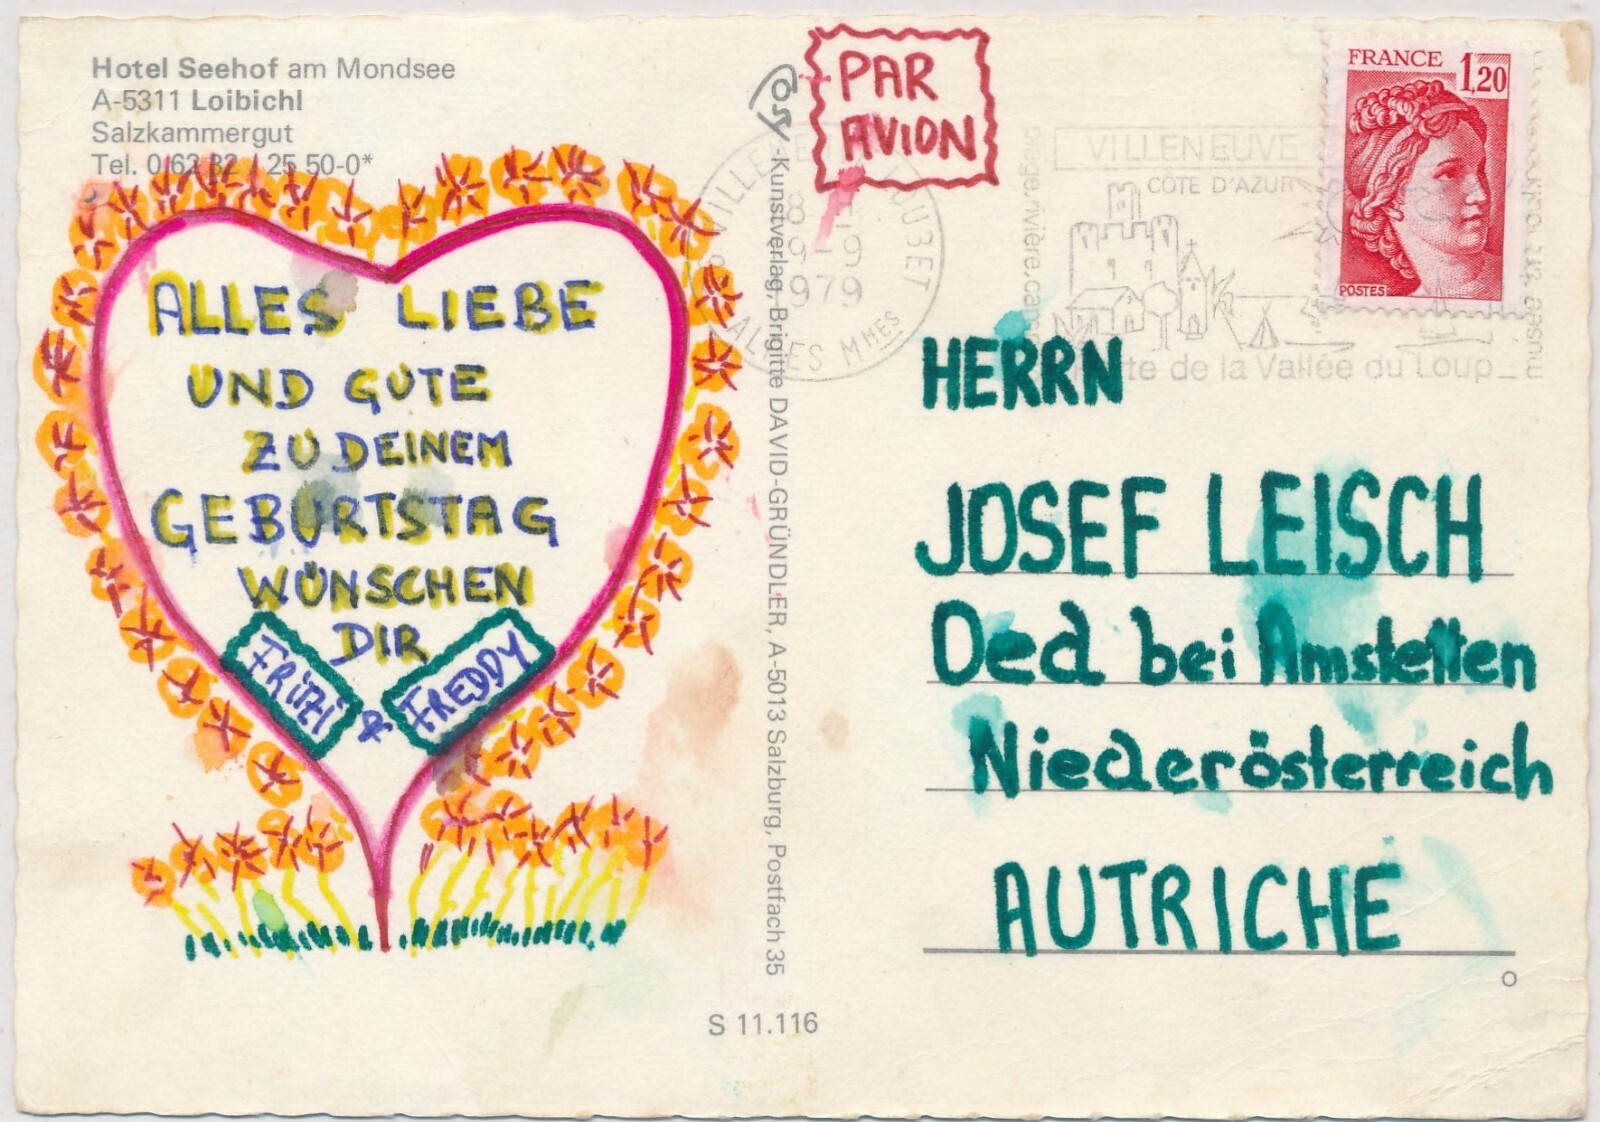 Hotel Seehof am Mondsee
A-5311 Loibichl
Salzkammergut
Tel. 0/62 32 / 25 50-0*
ALLES LIEBE
UND GUTE
ZU DEINEM
GEBURTSTAG
WÜNSCHEN
DIR
FRITZI & FREDDY
Cosy-Kunstverlag, Brigitte DAVID-GRÜNDLER, A-5013 Salzburg, Postfach 35
S 11.116
PAR
AVION
FRANCE 1,20
POSTES
VILLENEUVE
CÔTE D'AZUR
te de la Vallée du Loup
plage, rivière, cam
1979
ALPES MMES
HERRN
JOSEF LEISCH
Oed bei Amstetten
Niederösterreich
AUTRICHE